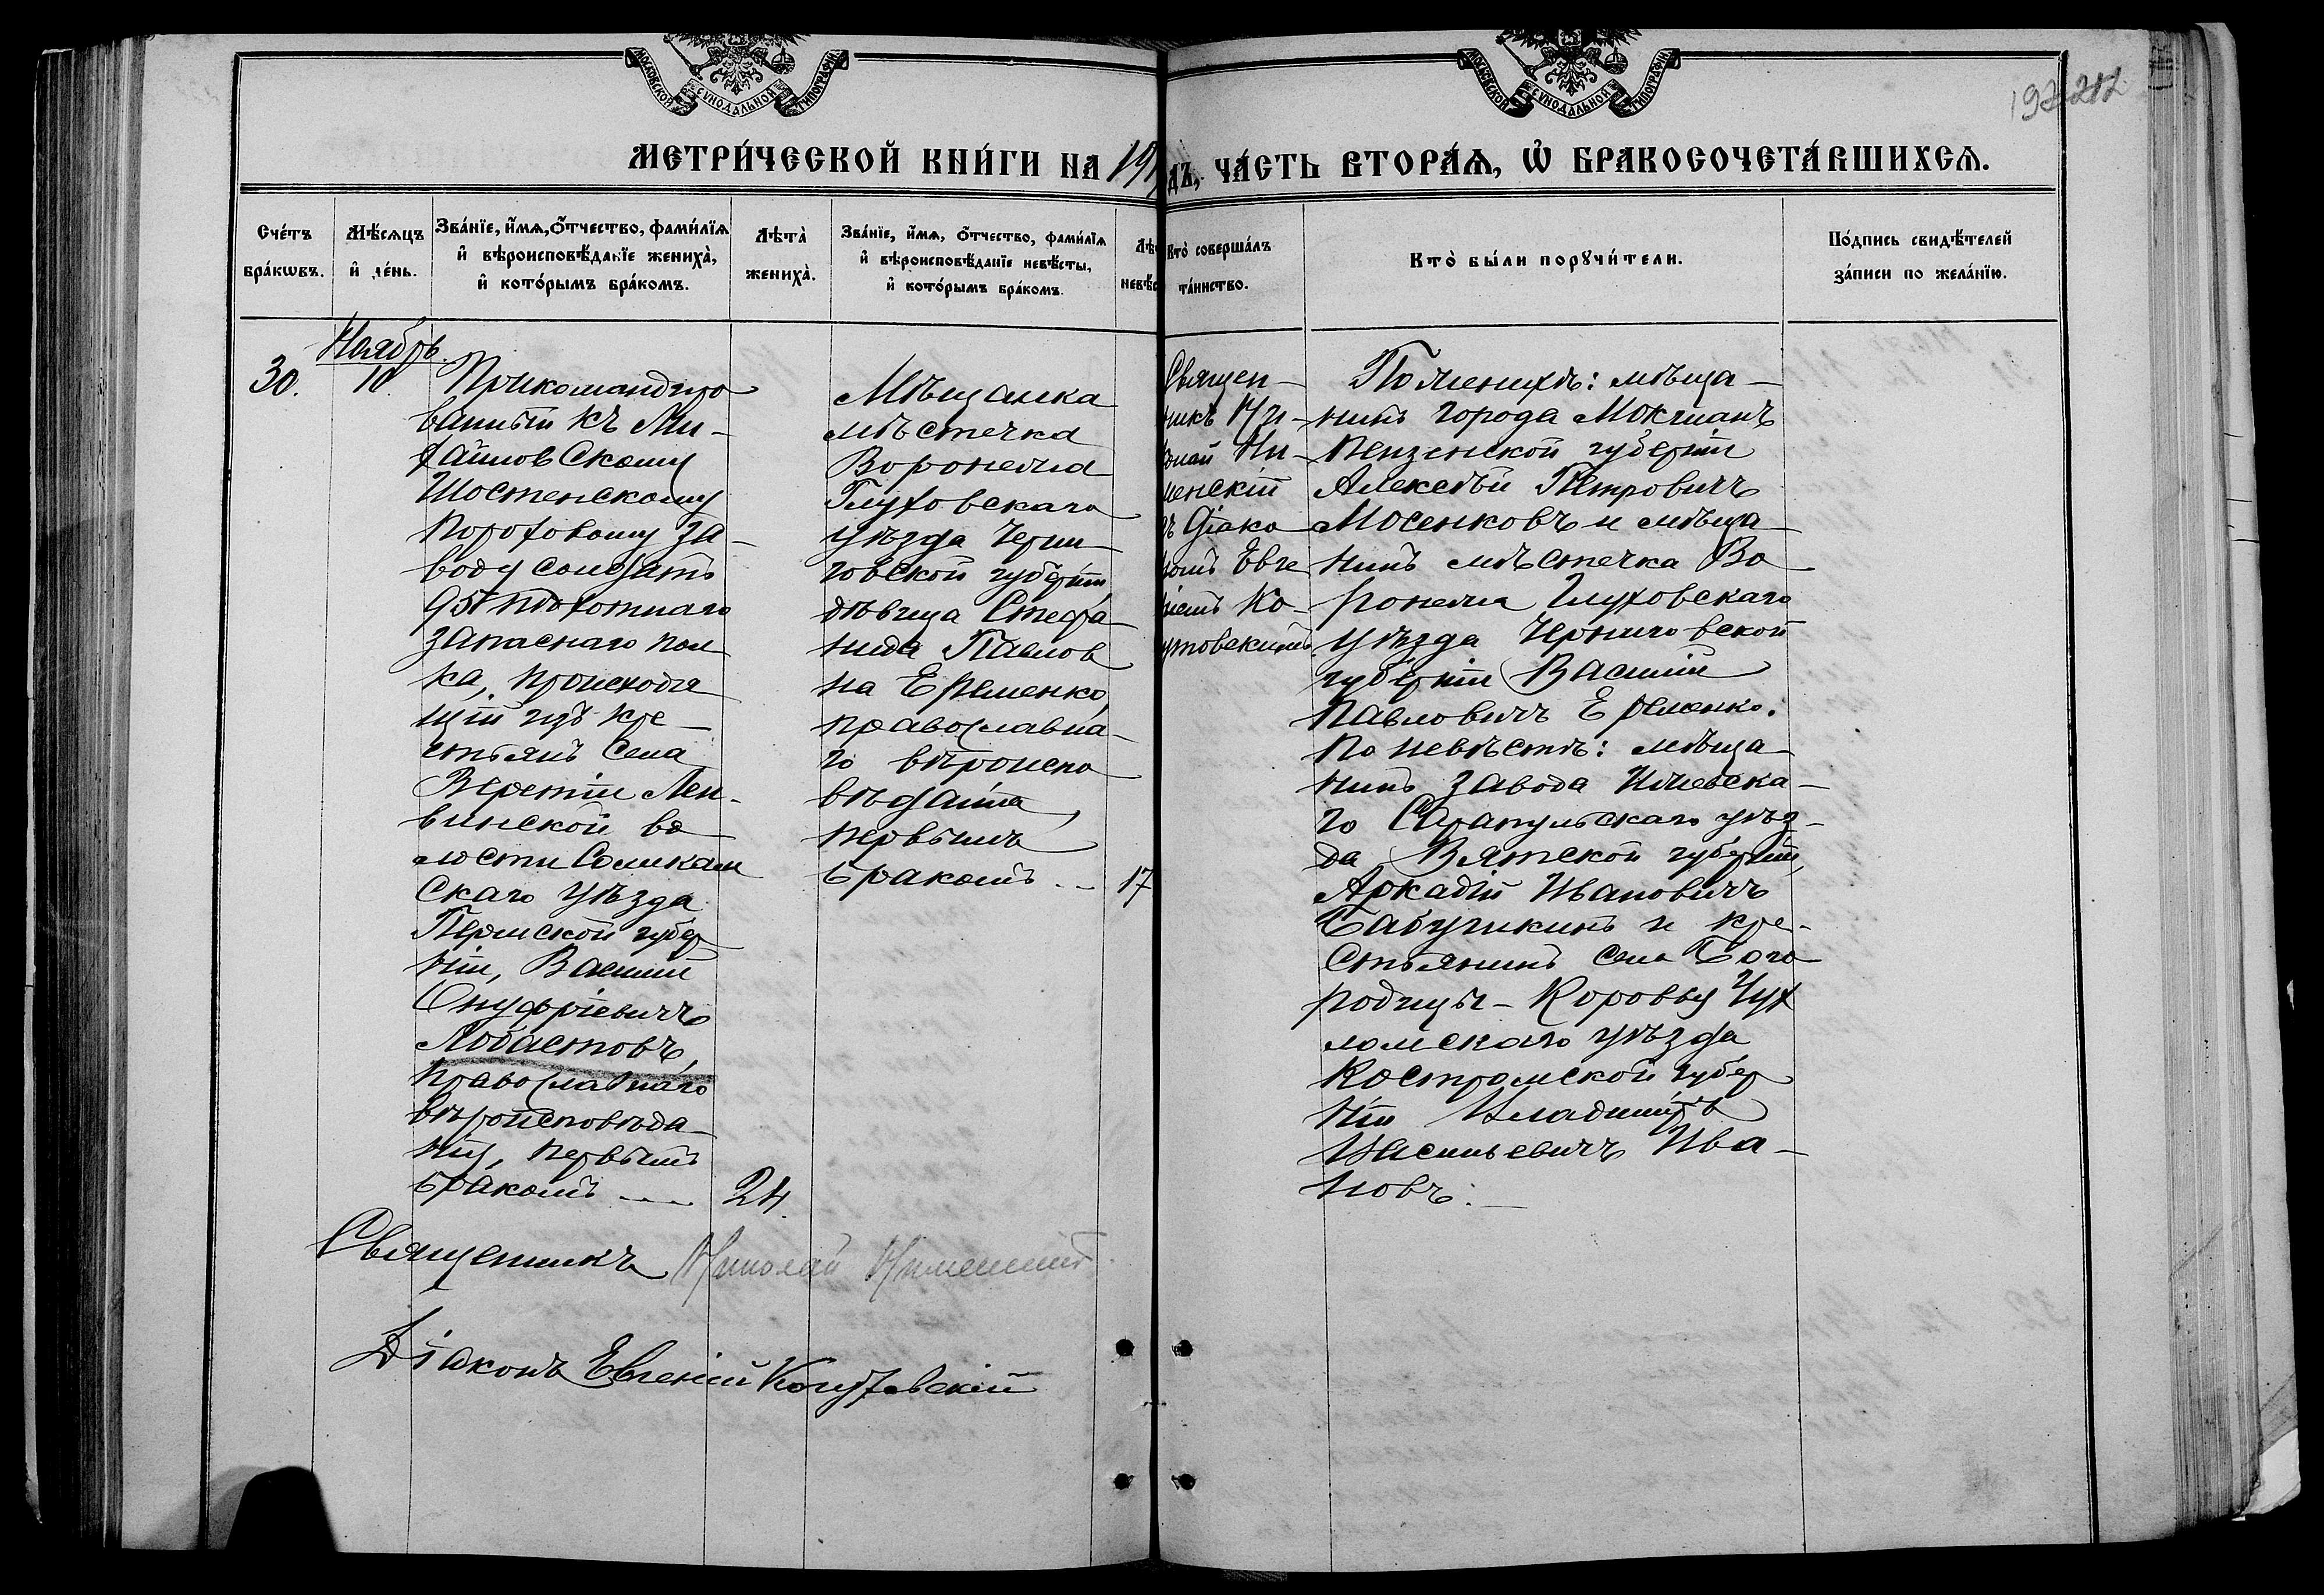 МОСКОВСКОЙ СѴНОДАЛЬНОЙ ТИПОГРАФІИ
МОСКОВСКОЙ СѴНОДАЛЬНОЙ ТИПОГРАФІИ
212
МЕТРИ́ЧЕСКОЙ КНИ́ГИ НА 191
ДЪ, ЧА́СТЬ ВТОРА́Ѧ, Ѽ БРАКОСОЧЕТА́ВШИХСѦ.
Сче́тъ
бра́кѡвъ.
Мѣ́сѧцъ
и҆ де́нь.
Зва́нїе, и҆́мѧ, ѻ҆́тчество, фами́лїѧ
и҆ вѣроисповѣ́данїе жениха̀,
и҆ кото́рымъ бра́комъ.
Лѣта̀
жениха̀.
Зва́нїе, и҆́мѧ, ѻ҆́тчество, фами́лїѧ
и҆ вѣроисповѣ́данїе невѣ́сты,
и҆ кото́рымъ бра́комъ.
Лѣ
невѣс
Кто̀ соверша́лъ
та́инство.
Кто̀ бы́ли порꙋчи́тели.
По́дпись свидѣ́телей
за́писи по жела́нїю.
Ноябрь.
30.
10
Прикомандиро
ванный къ Ми-
хайловскому
Шостенскому
пороховому за-
воду солдатъ
95 пѣхотнаго
запаснаго пол
ка, происходя
щій изъ кре-
стьянъ села
Веретіи Лен-
винской во-
лости Соликам
скаго уѣзда
Пермской губер
ніи, Василій
Онуфріевичъ
Лобастовъ,
православнаго
вѣроисповѣда-
нія, первымъ
бракомъ
24.
Мѣщанка
мѣстечка
Воронежа
Глуховскаго
уѣзда Черни-
говской губерніи
дѣвица Стефа-
нида Павлов
на Еременко,
православна-
го вѣроиспо
вѣданія,
первымъ
бракомъ
17
Священ-
никъ Ни-
колай Ни-
менскій
ъ Діако
номъ Евге
ніемъ Ко-
утовскимъ.
По женихѣ: мѣща-
нинъ города Мокшанъ
Пензенской губерніи
Алексѣй Петровичъ
Мосенковъ и мѣща
нинъ мѣстечка Во
ронежа Глуховскаго
уѣзда Черниговской
губерніи Василій
Павловичъ Еременко.
По невѣстѣ: мѣща-
нинъ завода Ижевска-
го Сарапульскаго уѣз-
да Вятской губерніи,
Аркадій Ивановичъ
Бабушкинъ и кре-
стьянинъ села Бого
родицы-Коровы Чух
ломскаго уѣзда
Костромской губер
ніи Владиміръ
Васильевичъ Ива-
новъ.
Священникъ Николай
Діаконъ Евгеній